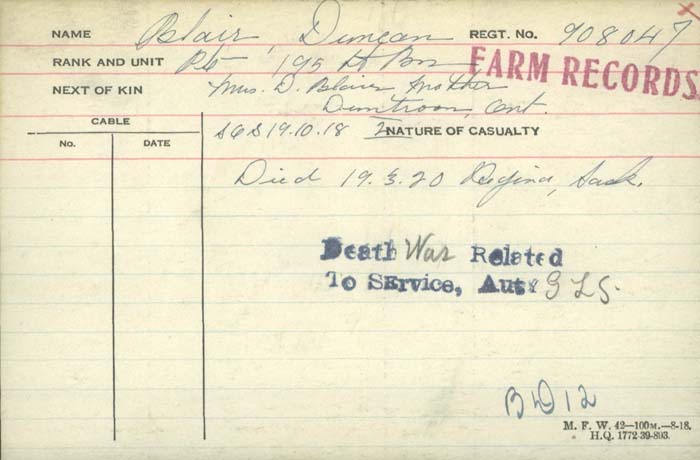 NAME Blair, Duncan REGT. No. 908047 x
RANK AND UNIT Pte 195th Bn
FARM RECORDS.
NEXT OF KIN Mrs. D. Blair, Mother
Duntroon, Ont.
CABLE
S O S 19.10.18 2 NATURE OF CASUALTY
No. DATE
Died 19.3.20 Regina, Sask.
Death War Related
To Service, Aut: G L S.
B D 12
M. F. W. 42—100M.—8-18.
H.Q. 1772-39-893.